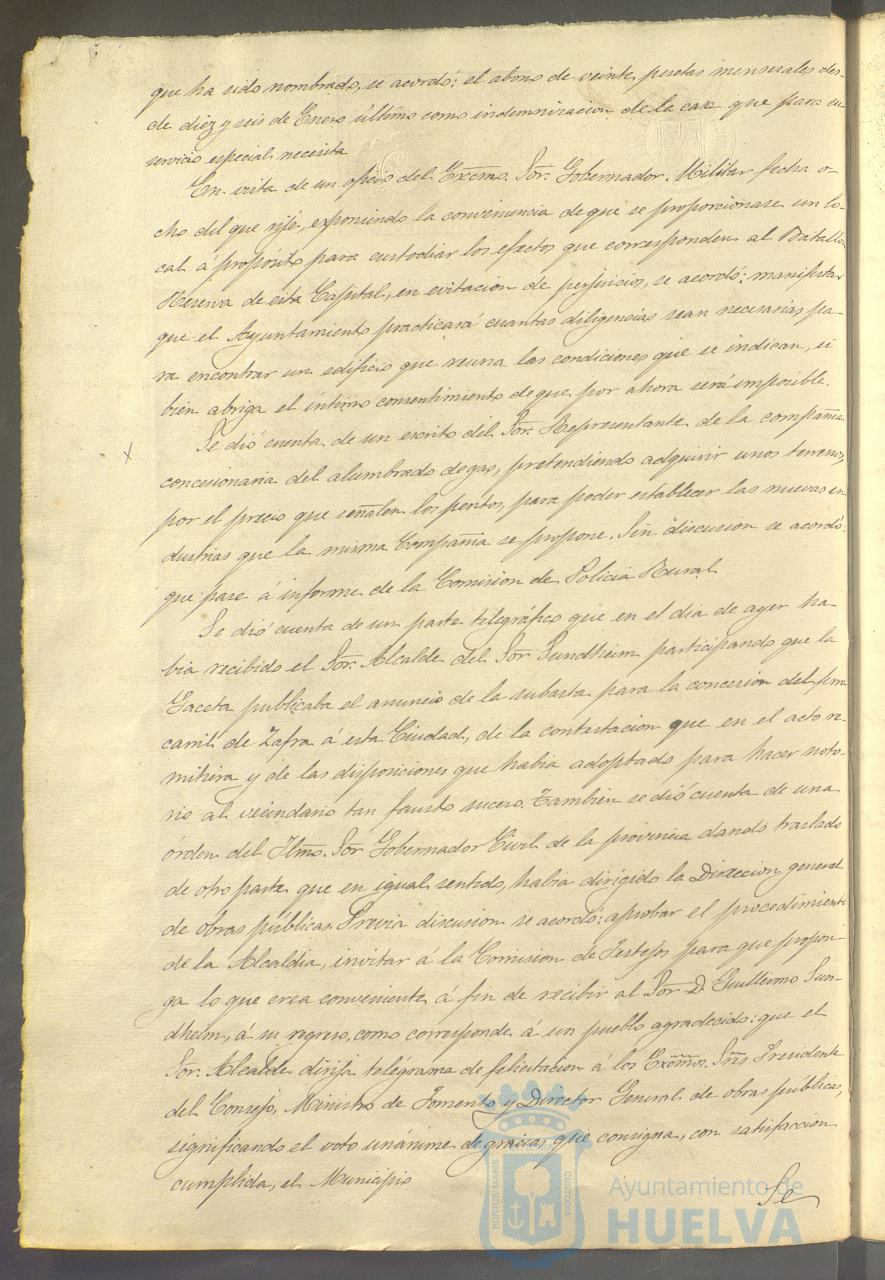 que ha sido nombrado, se acordó: el abono de veinte pesetas mensuales des-
de diez y seis de Enero último como indemnizacion de la casa que para su
servicio especial necesita
En vista de un oficio del Excmo. Sor. Gobernador Militar fecha o-
cho del que rije, exponiendo la conveniencia de que se proporcionase un lo-
cal á propósito para custodiar los efectos que corresponden al Batallon
Reserva de esta Capital, en evitacion de perjuicios, se acordó: manifestar
que el Ayuntamiento practicará cuantas diligencias sean necesarias pa-
ra encontrar un edificio que reuna las condiciones que se indican, si
bien abriga el íntimo consentimiento de que por ahora será imposible.
Se dió cuenta de un escrito del Sor. Representante de la compañia
concesionaria del alumbrado de gas, pretendiendo adquirir unos terrenos,
por el precio que señalen los peritos, para poder establecer las nuevas in
dustrias que la misma Compañia se propone. Sin discusion se acordó
que pase á informe de la Comision de Policia Rural
Se dió cuenta de un parte telegráfico que en el dia de ayer ha
bia recibido el Sor. Alcalde del Sor Sundheim participando que la
Gaceta publicaba el anuncio de la subasta para la concesion del ferro
carril de Zafra á esta Ciudad, de la contestacion que en el acto re-
mitiera y de las disposiciones que habia adoptado para hacer noto-
rio al vecindario tan fausto suceso. Tambien se dió cuenta de una
órden del Iltmo. Sor Gobernador Civil de la provincia dando traslado
de otro parte que en igual sentido, habia dirigido la Direccion general
de obras públicas. Previa discusion se acordó: aprobar el procedimiento
de la Alcaldia, invitar á la Comision de Festejos para que propon-
ga lo que crea conveniente á fin de recibir al Sor D. Guillermo Sun-
dheim, á su regreso, como corresponde á un pueblo agradecido: que el
Sor. Alcalde dirija telégrama de felicitacion á los Excmos. Sres Presidente
del Consejo, Ministro de Fomento y Director General de obras públicas,
significando el voto unánime de gracias que consigna, con satisfaccion
cumplida, el Municipio
Se
PORTUS MARIS
CUSTODIA
Ayuntamiento de
HUELVA